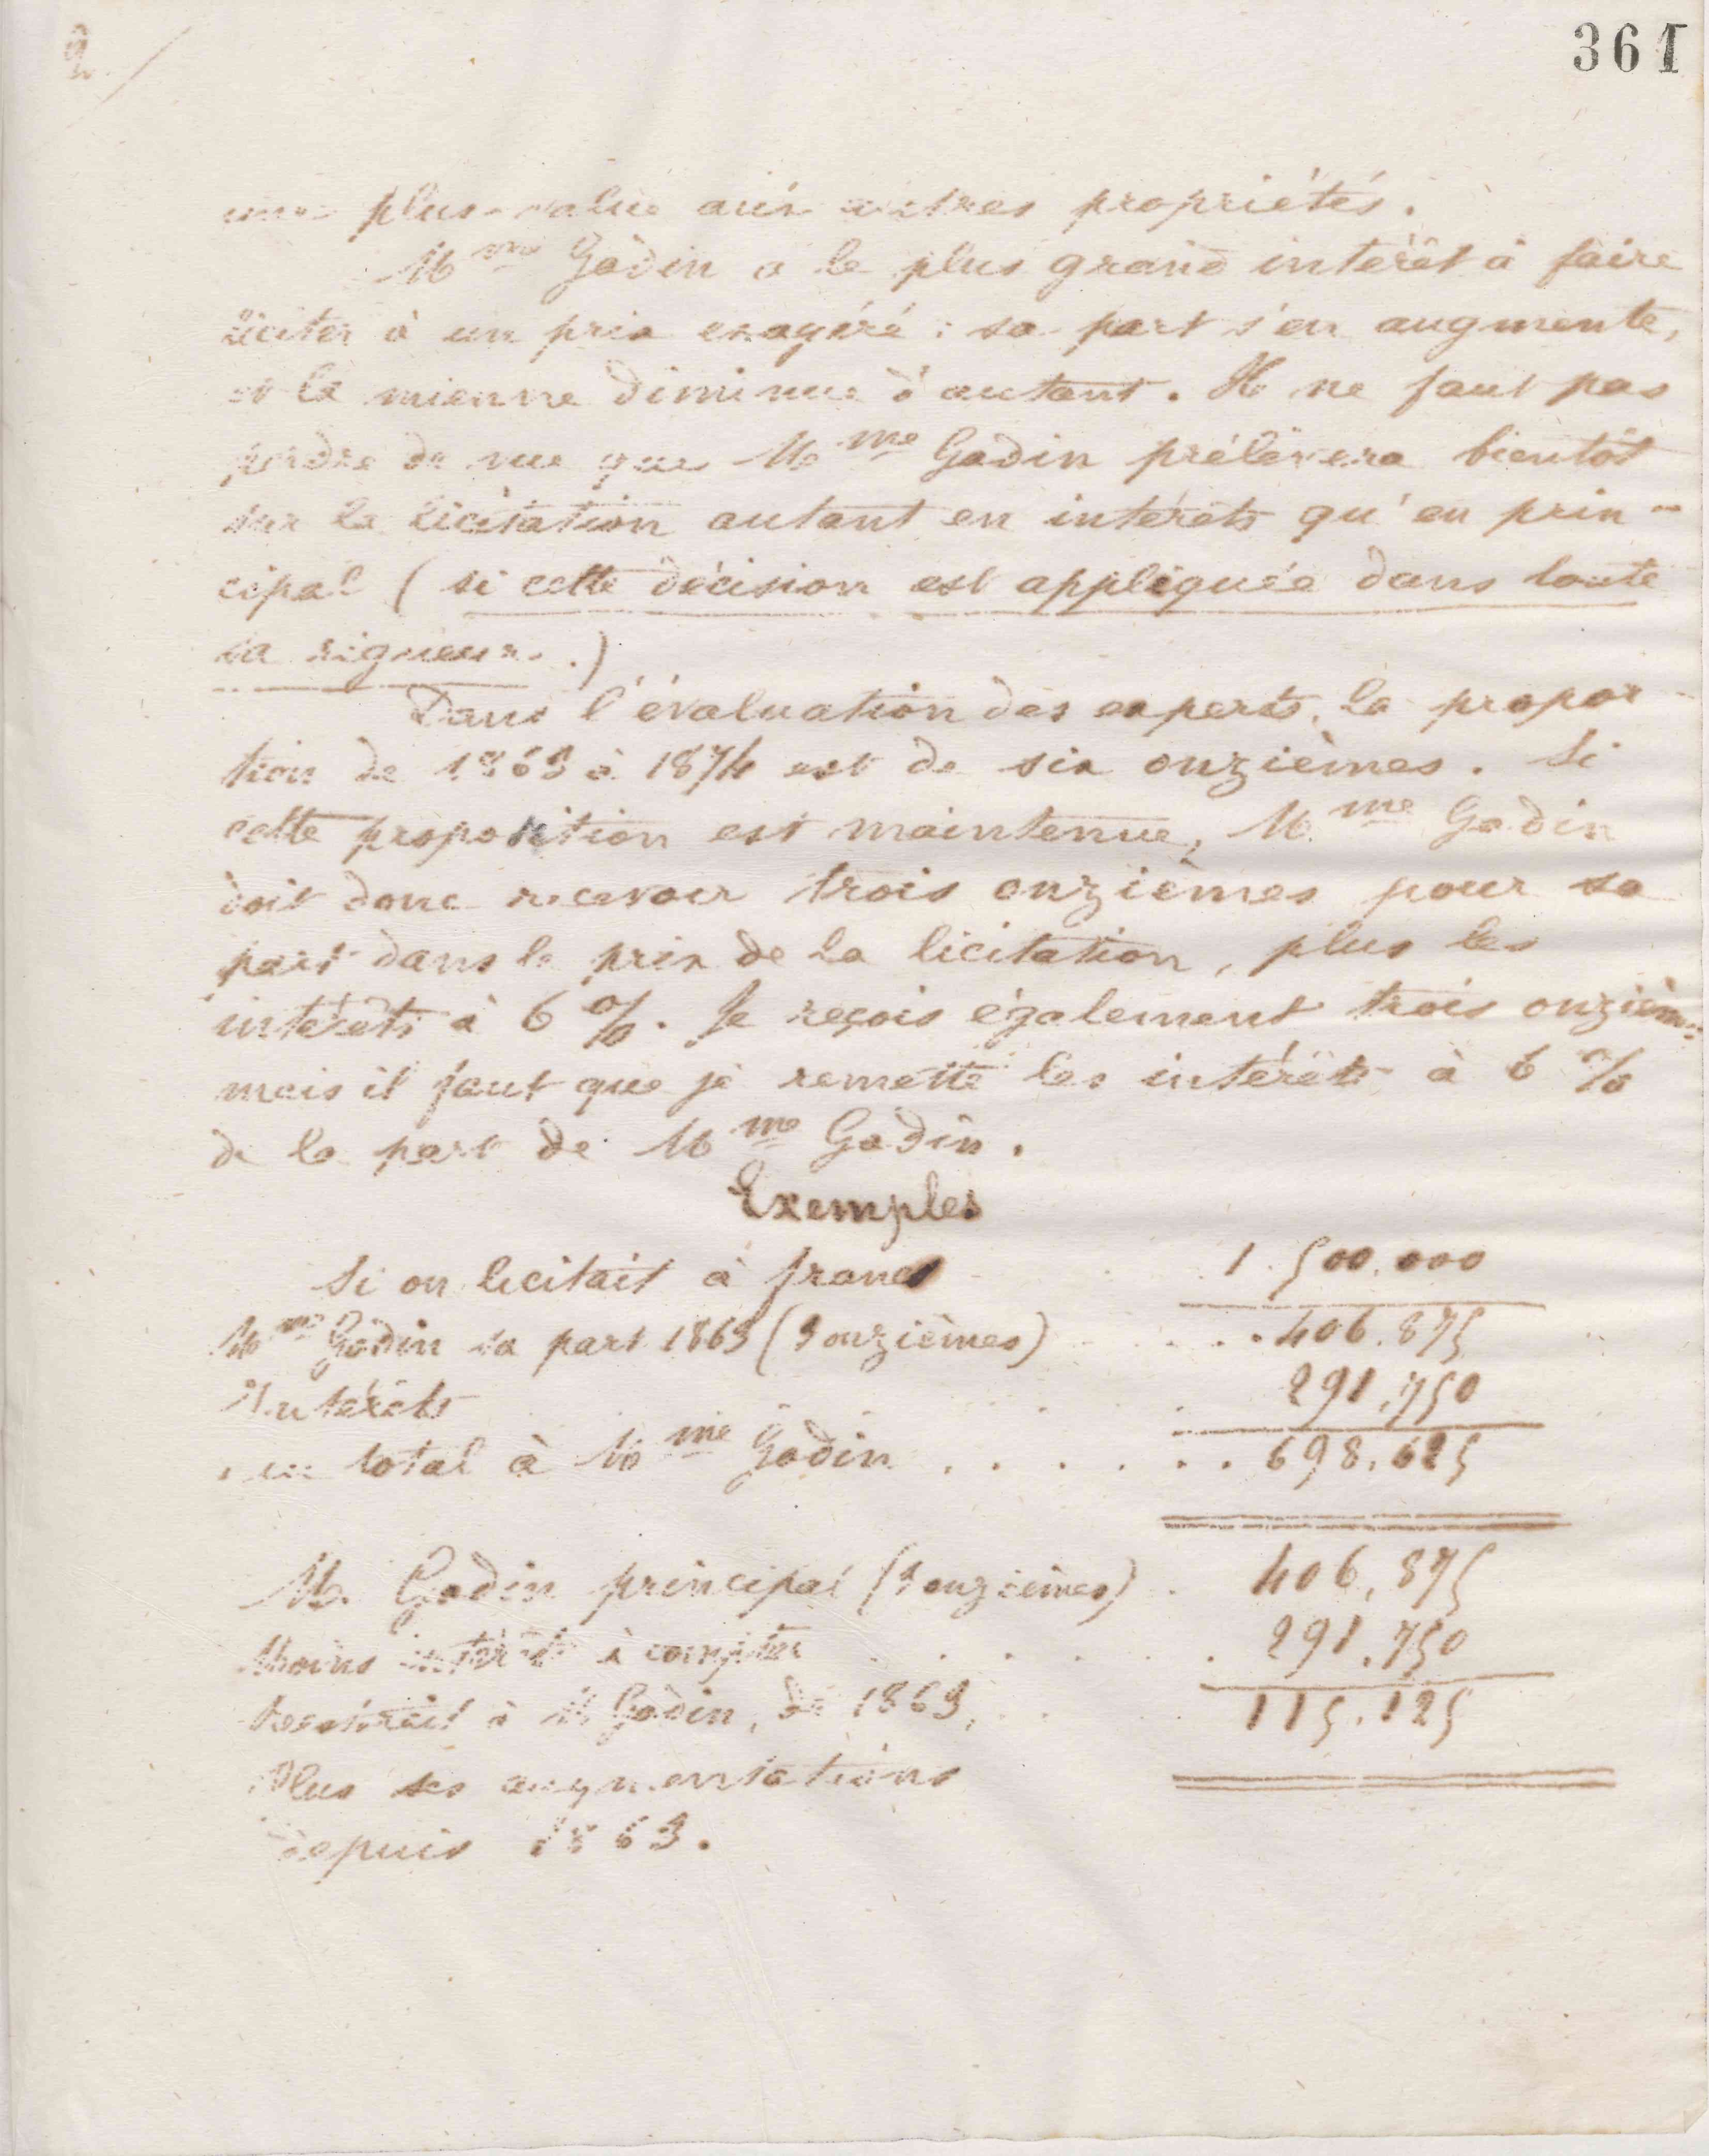 2
361
une plus-value aux autres propriétés.
Mme Godin a le plus grand intérêt à faire
liciter à un prix exagéré : sa part s'en augmente,
et la mienne diminue d'autant. Il ne faut pas
perdre de vue que Mme Godin prélèvera bientôt
sur la licitation autant en intérêts qu'en prin-
cipal (si cette décision est appliquée dans toute
sa rigueur.)
Dans l'évaluation des experts, la propor-
tion de 1863 à 1874 est de six onzièmes. Si
cette proposition est maintenue, Mme Godin
doit donc recevoir trois onzièmes pour sa
part dans le prix de la licitation, plus les
intérêts à 6 %. Je reçois également trois onzièmes
mais il faut que je remette les intérêts à 6 %
de la part de Mme Godin.
Exemples
Si on licitait à francs 1.500.000
Mme Godin sa part 1863 (3 onzièmes) . . . 406.875
Intérêts . . . . 291.750
au total à Mme Godin . . . . . . . . 698.625
M. Godin principal (3 onzièmes) . 406.875
Moins intérêts à compter . . . . . . 291.750
Resterait à M Godin, de 1863, . . 115.125
Plus ses augmentations
depuis 1863.